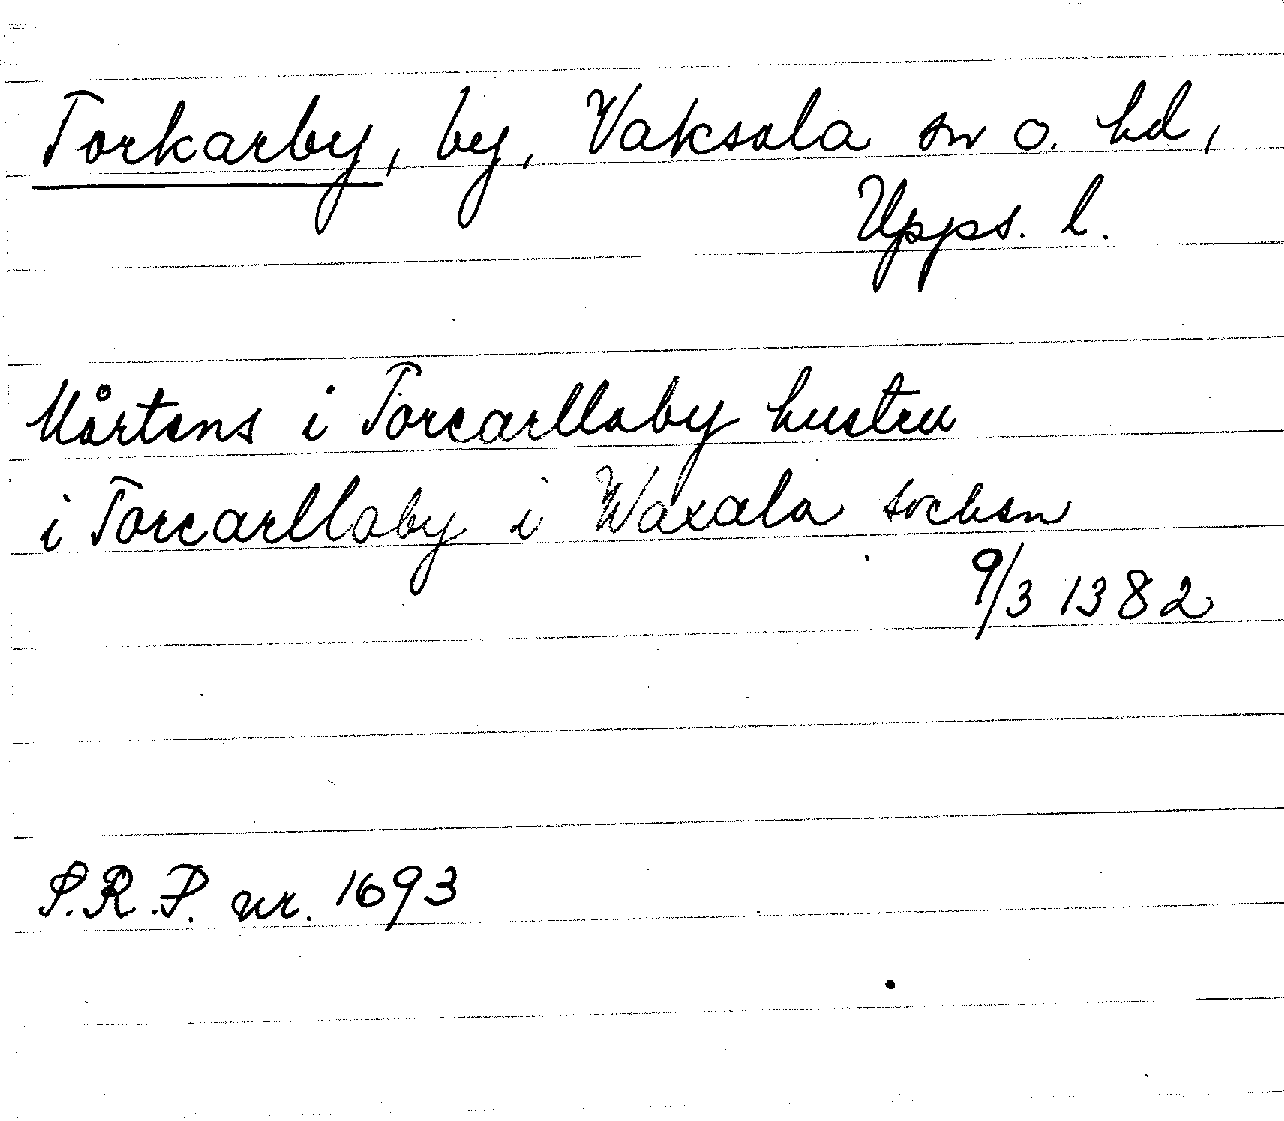 Torkarby, by, Vaksala sn o. hd,
Upps. l.
Mårtens i Torcarllaby hustru
i Torcarllaby i Waxala sochen
9/3 1382
S.R.P. nr. 1693